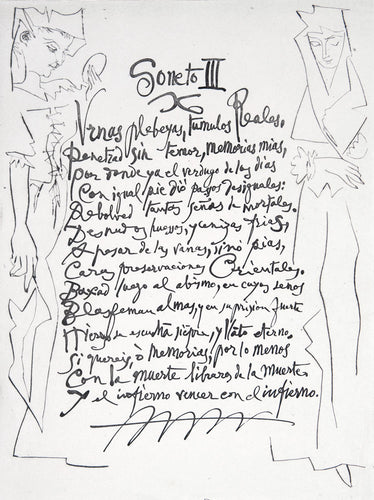 Soneto III
Vrnas plebeyas, tumulos Reales,
Penetrad sin temor, memorias mias,
por donde ya el verdugo de los dias
Con igual pie dió passos desiguales:
Rebolved tantas señas de mortales.
Desnudos huessos, y cenizas frias,
A pesar de las vanas, si nó pias,
Caras preservaciones Orientales.
Baxad luego al abismo, en cuyos senos
Blasfeman almas, y en su prision fuerte
Hierros se escuchã siẽpre, y llãto eterno.
Si quereis, ò memorias, por lo menos
Con la muerte libraros de la Muerte
Y el infierno vencer con el infierno.